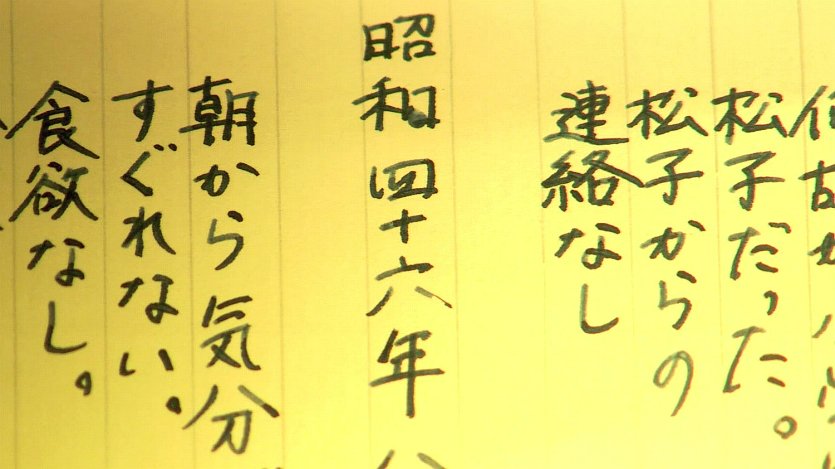 何故か
松子だった。
松子からの
連絡なし
昭和四十六年八
朝から気分
すぐれない。
食欲なし。